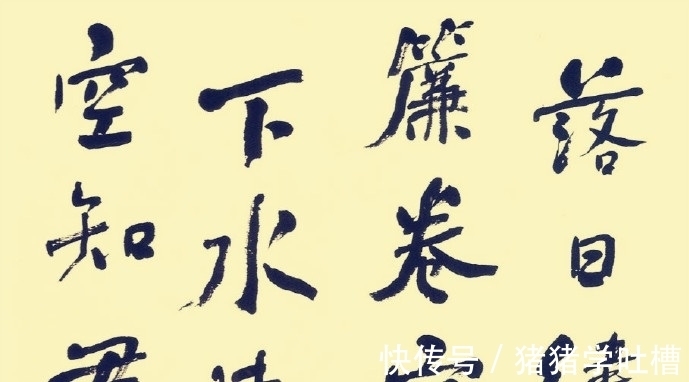 落日
簾卷
下水
空知
快传号 / 猪猪学吐槽